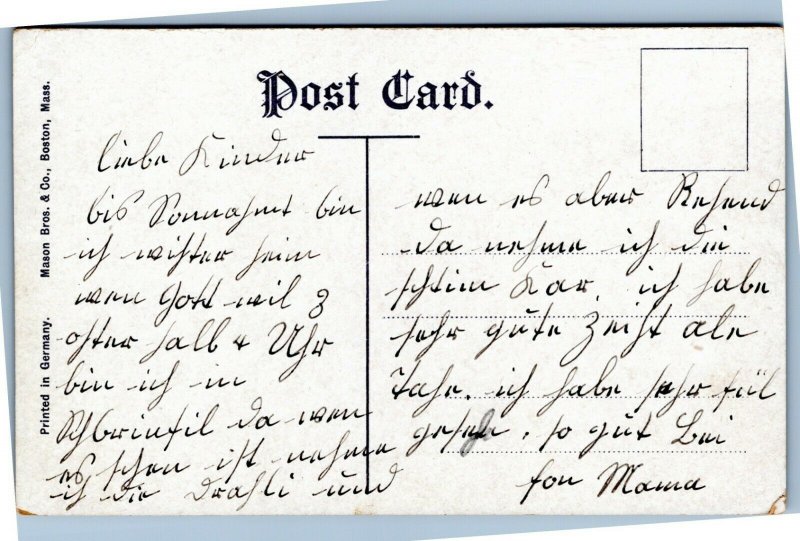 Post Card.
Printed in Germany. Mason Bros. & Co., Boston, Mass.
liebe Kinder
bis Sonnahmt bin
ich wihter heim
wen Gott wil 3
oher halb 4 Uhr
bin ich in
da wen
es schen ist nehme
ich die Drahli und
wen es aber Rehend
da nehme ich die
schtim Kar. ich habe
sehr gute Zeiht ale
Tahe. ich habe sehr fül
gesehn, so gut Bei
fon Mama